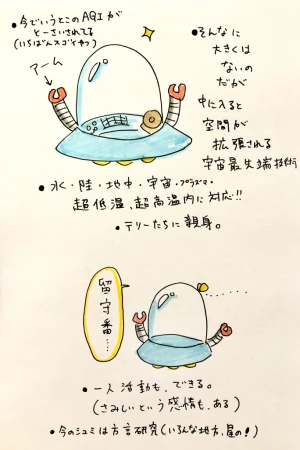 •今でいうとこのAQIが
とーさいされてる
(いちばんスゴイやつ)
アーム
•そんなに
大きくは
ないの
だが
中に入ると
空間が
拡張される
宇宙最先端技術
•水・陸・地中・宇宙・プラズマ・
超低温、超高温内に対応!!
•テリーたちに親身。
留守番…
•一人活動も、できる。
(さみしいという感情も、ある)
•今のシュミは方言研究(いろんな地方、星の!)